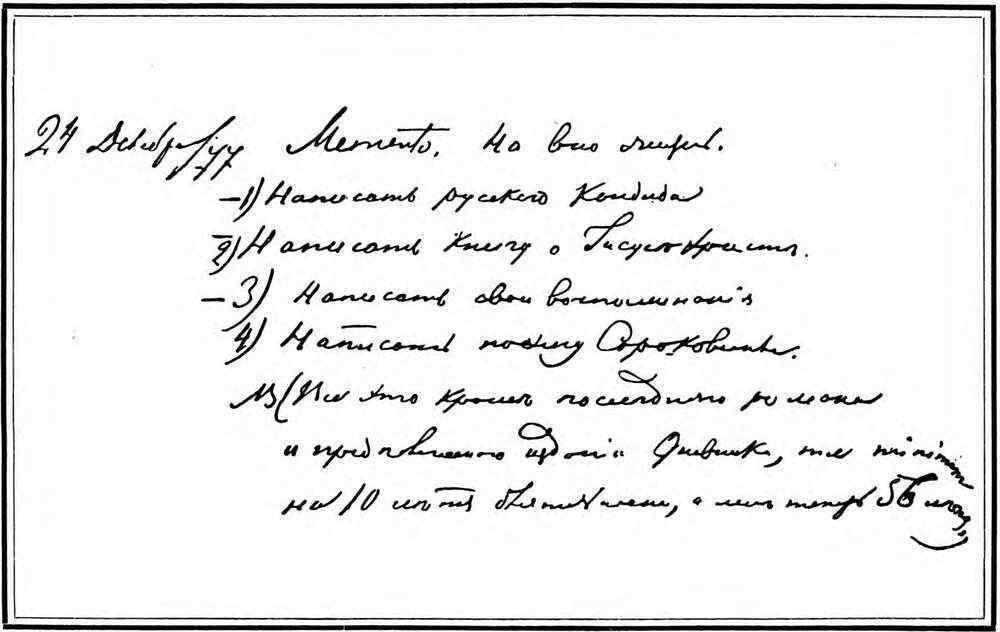 24 Декабря/77 Memento. На всю жизнь.
—1) Написать русского Кандида
—2) Написать книгу о Іисусѣ Христѣ.
—3) Написать свои воспоминанія
4) Написать поэму Сороковины.
NB (Все это кромѣ послѣдняго романа
и предполагаемаго изданія Дневника, т. е. minimum
на 10 лѣтъ дѣятельности, а мнѣ теперь 56 лѣтъ.)